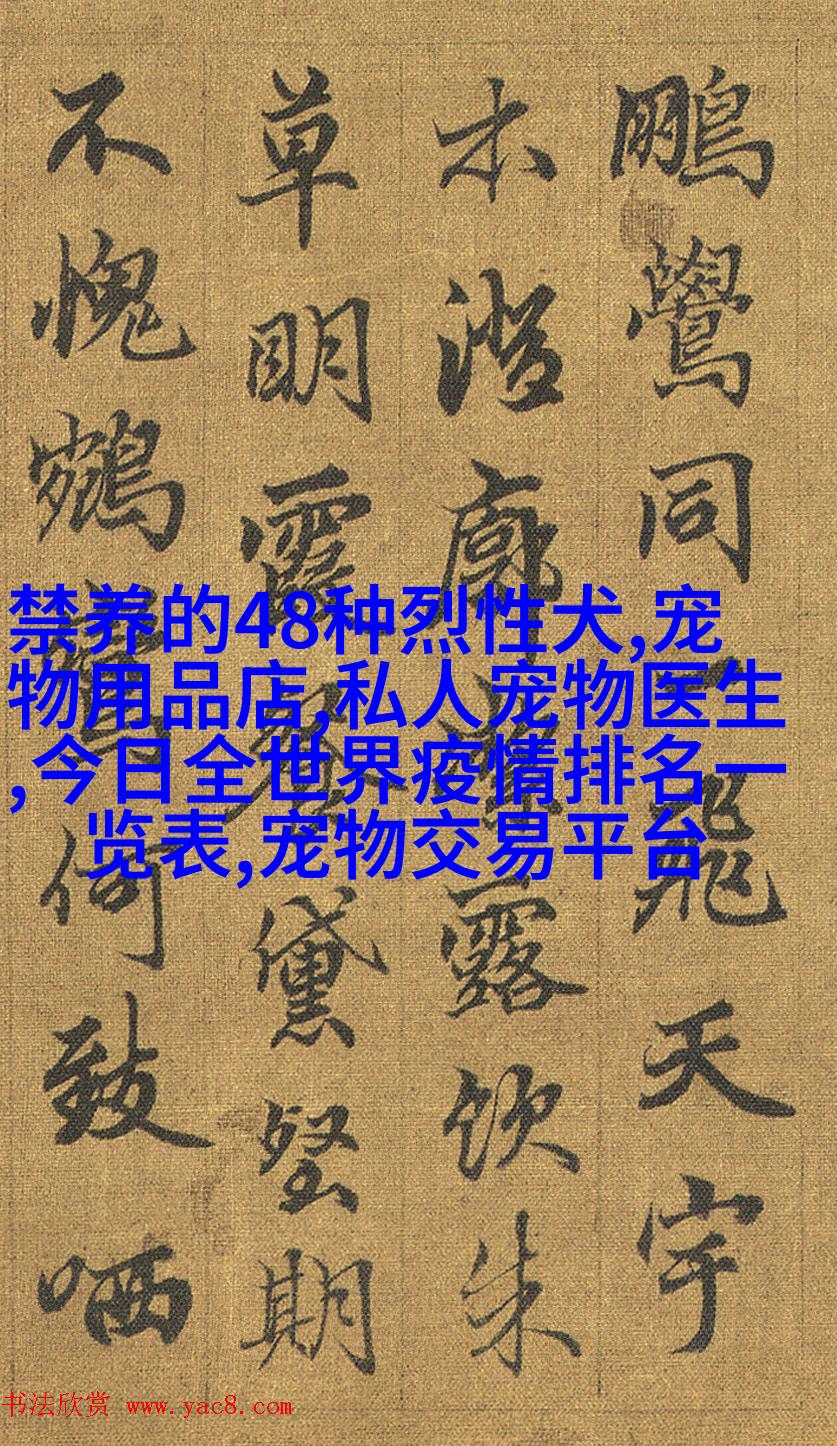 鵬鷽同一飛天宇
木澄廓露饮朱
草明霞黛堅期
不愧鶴何致哂
禁养的48种烈性犬,宠
物用品店,私人宠物医生
,今日全世界疫情排名一
览表,宠物交易平台
书法欣赏 www.yac8.com